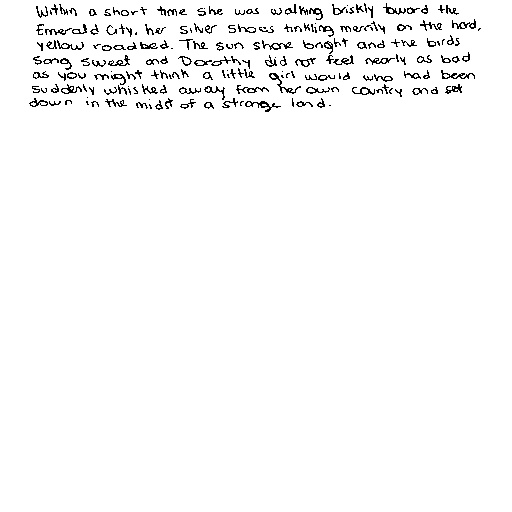 Within a short time she was walking briskly toward the
Emerald City, her Silver Shoes tinkling merrily on the hard,
yellow roadbed. The sun shone bright and the birds
sang sweet and Dorothy did not feel nearly as bad
as you might think a little girl would who had been
suddenly whisked away from her own country and set
down in the midst of a strange land.